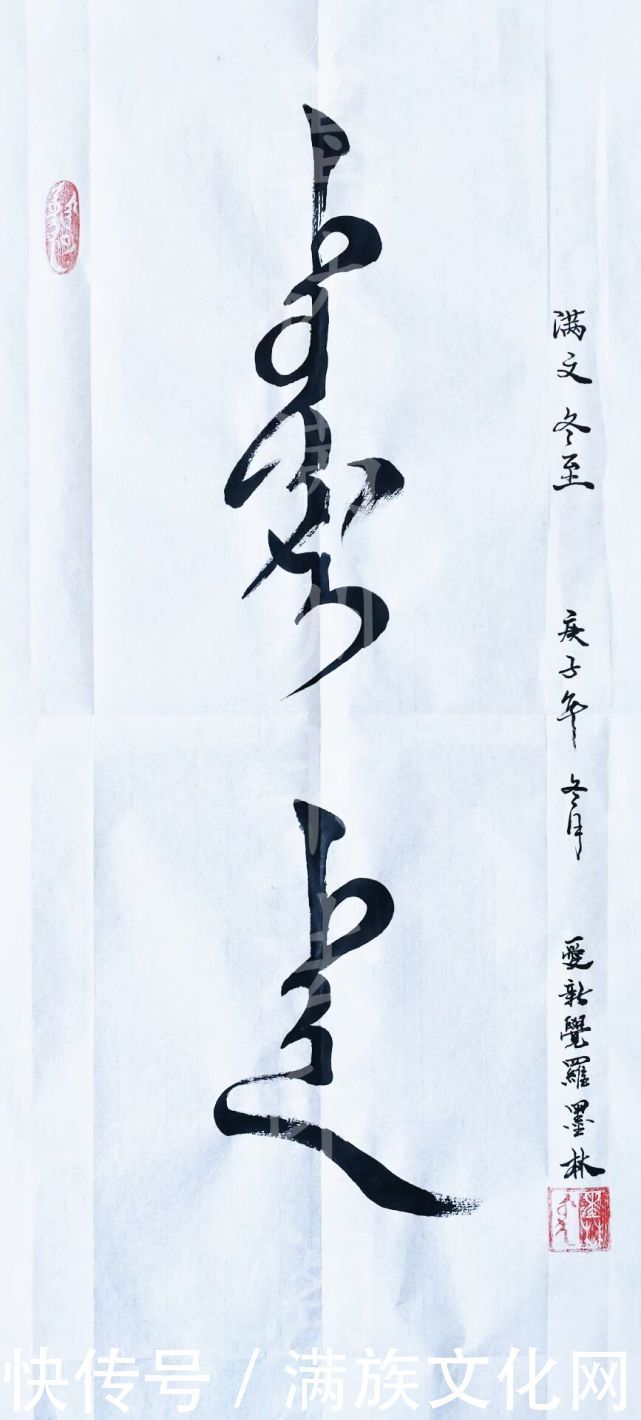 ᡨᡠᠸᡝᡵᡳ
ᡨᡝᠨ
满文冬至 庚子年 冬月 愛新覺羅墨林
快传号 / 满族文化网